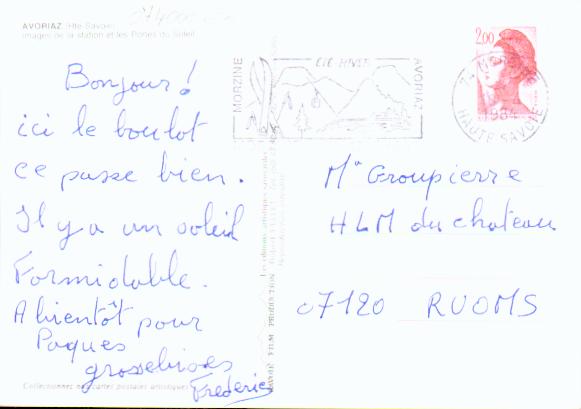 AVORIAZ (Hte Savoie)
Images de la station et les Portes du Soleil
Bonjour!
ici le boulot
ce passe bien.
Il y a un soleil
Formidable.
A bientôt pour
Paques
grossebises
Frederic
Collectionnez nos cartes postales artistiques
MORZINE
ETE HIVER
AVORIAZ
2,00
1984
HAUTE SAVOIE
Mᵐ Groupierre
HLM du chateau
07120 RUOMS